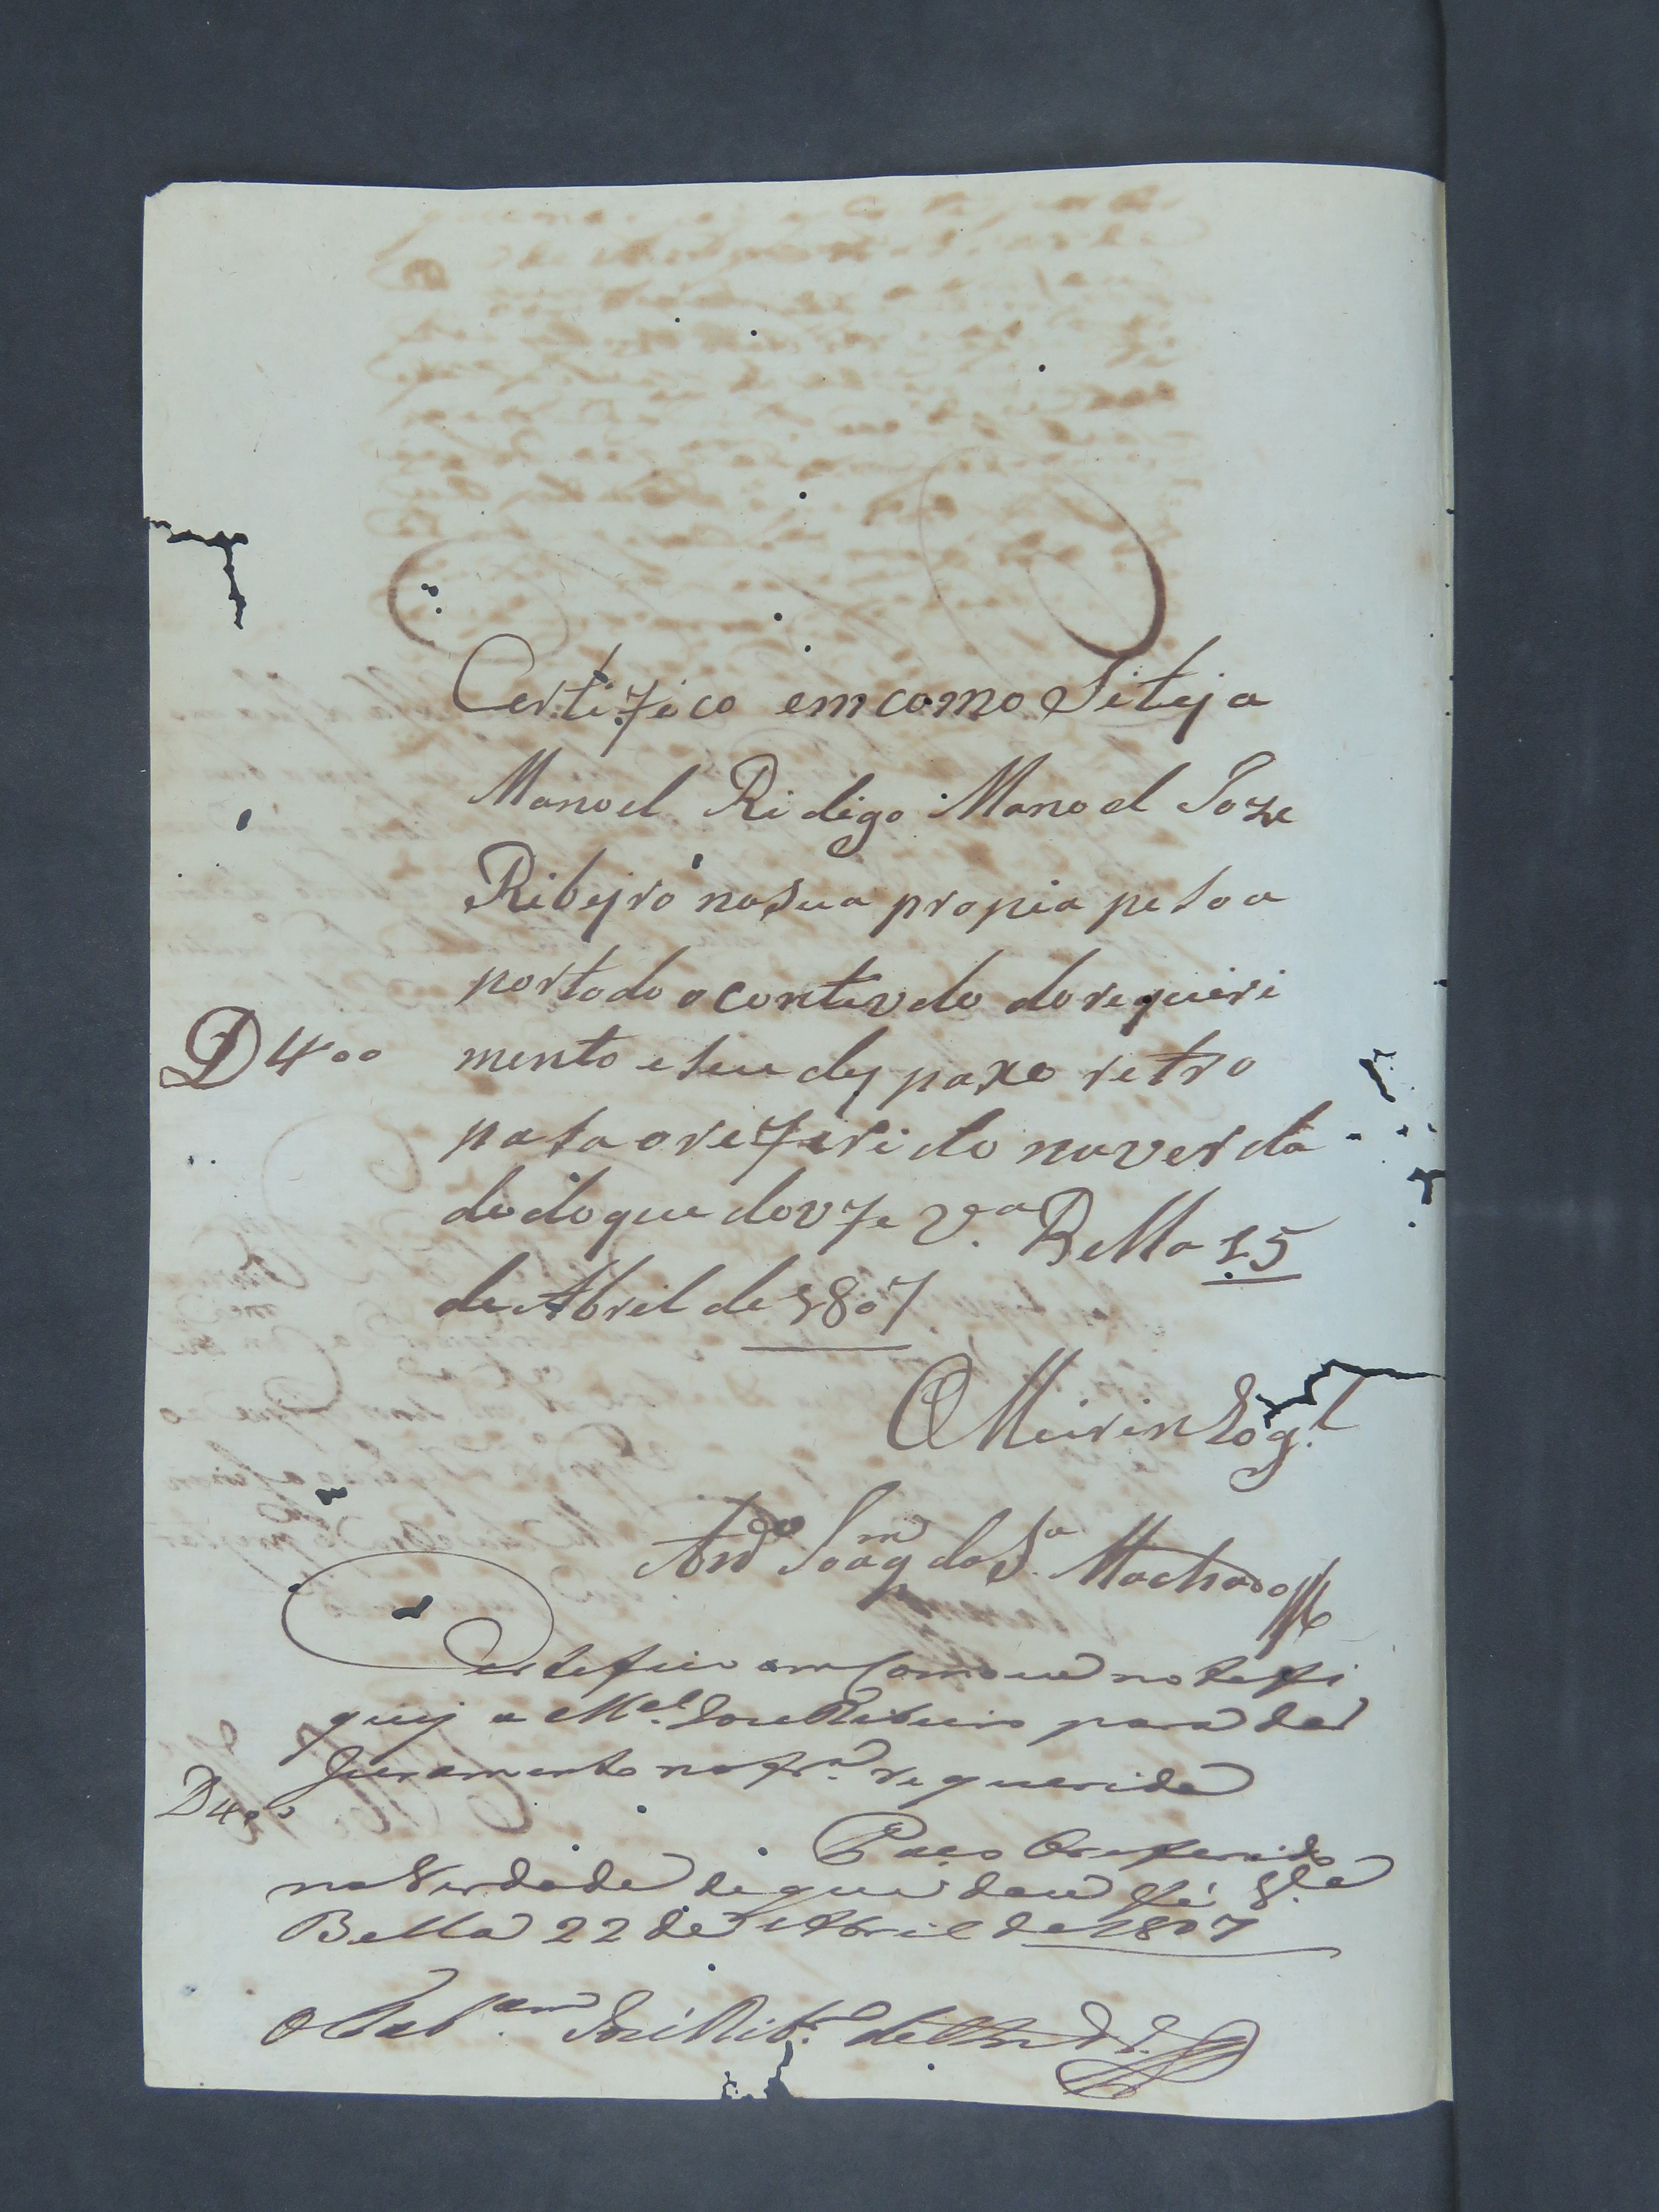 Certifico em como Sitej a
Manoel Ridigo Manoel Joze
Ribejro na Sua propia pesoa
por todo o contevdo do requiri
D 400
mento e seu despaxo retro
pasa o referido na verda
de do que dov fe V.a Bella 15
de Abril de 1807
O Meirin Log.l
Joaq.m da S.a Machado
Certefico em Como eu notefi
quej a M.el Joze Ribeiro para dar
Juramento na fr.a requerida
D 400
Paço O referido
na Verdade de que dou fé V.a
Bella 22 de Abril de 1807
O Tab.am José Rib.ro